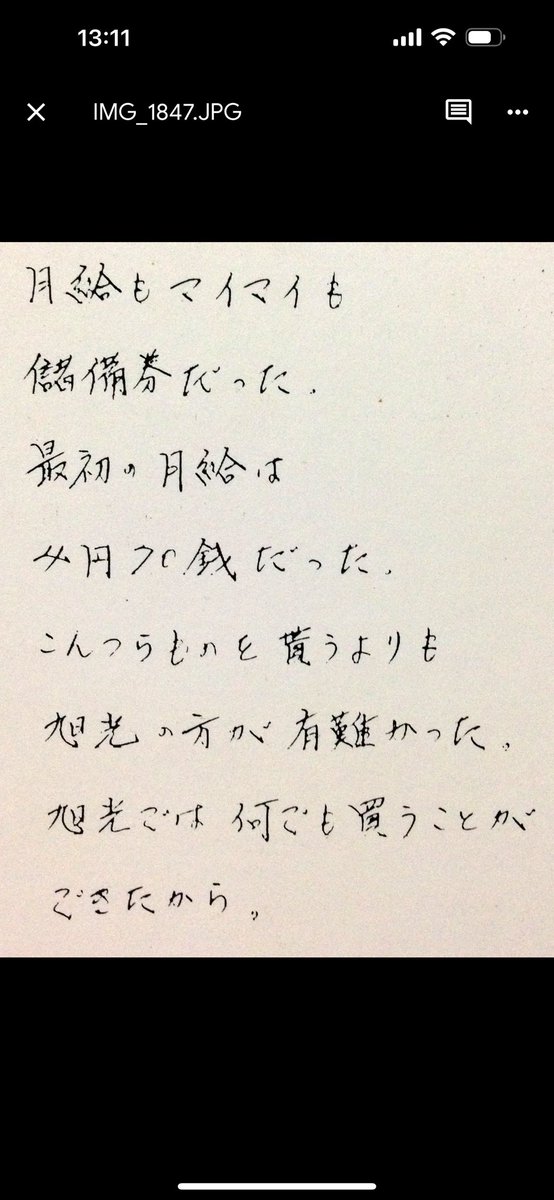 13:11
IMG_1847.JPG
月給もマイマイも
儲備券だった.
最初の月給は
円70銭だった.
こんつらものを貰うよりも
旭光の方が有難かった。
旭光では何でも買うことが
できたから。